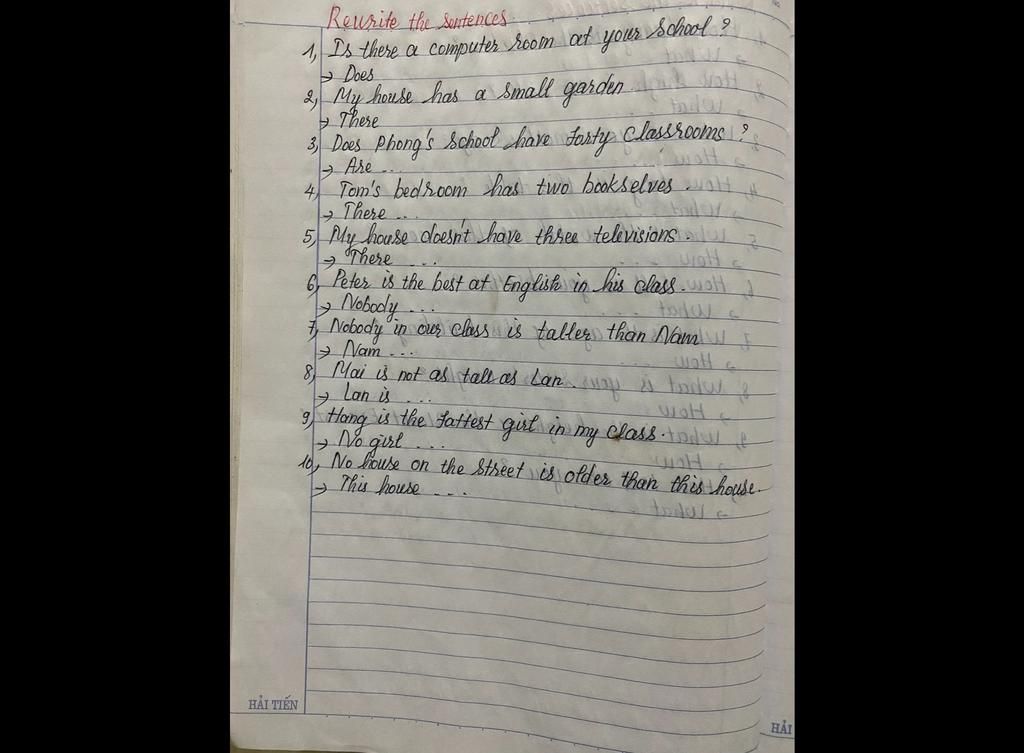 Rewrite the sentences
1, Is there a computer room at your school?
→ Does
2, My house has a small garden
→ There
3, Does Phong's school have forty classrooms?
→ Are ...
4, Tom's bedroom has two bookselves.
→ There ...
5, My house doesn't have three televisions.
→ There ...
6, Peter is the best at English in his class.
→ Nobody ...
7, Nobody in our class is taller than Nam
→ Nam ...
8, Mai is not as tall as Lan.
→ Lan is ...
9, Hong is the fattest girl in my class.
→ No girl ...
10, No house on the street is older than this house.
→ This house ...
HẢI TIẾN
HẢI